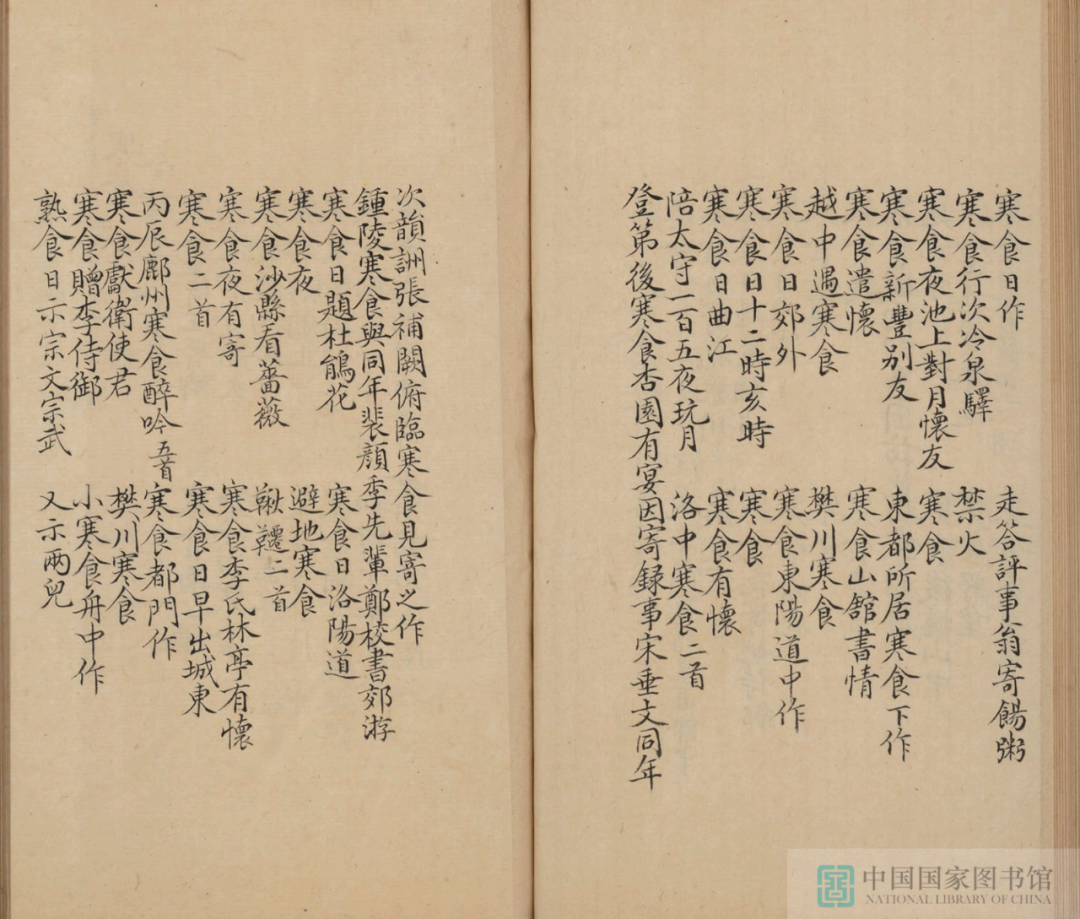 寒食日作 走答評事翁寄餳粥
寒食行次冷泉驛 禁火
寒食夜池上對月懷友 寒食
寒食新豐別友 東都所居寒食下作
寒食遣懷 寒食山館書情
越中遇寒食 樊川寒食
寒食日郊外 寒食東陽道中作
寒食日十二時亥時 寒食
寒食日曲江 寒食有懷
陪太守一百五夜玩月 洛中寒食二首
登第後寒食杏園有宴因寄録事宋垂文同年
次韻詶張補闕俯臨寒食見寄之作
鍾陵寒食與同年裴顔李先輩鄭校書郊游
寒食日題杜鵑花 寒食日洛陽道
寒食夜 避地寒食
寒食沙縣看薔薇 鞦韆二首
寒食夜有寄 寒食李氏林亭有懷
寒食二首 寒食日早出城東
丙辰鄜州寒食醉吟五首 寒食都門作
寒食獻衛使君 樊川寒食
寒食贈李侍御 小寒食舟中作
熟食日示宗文宗武 又示兩兒
中国国家图书馆
NATIONAL LIBRARY OF CHINA